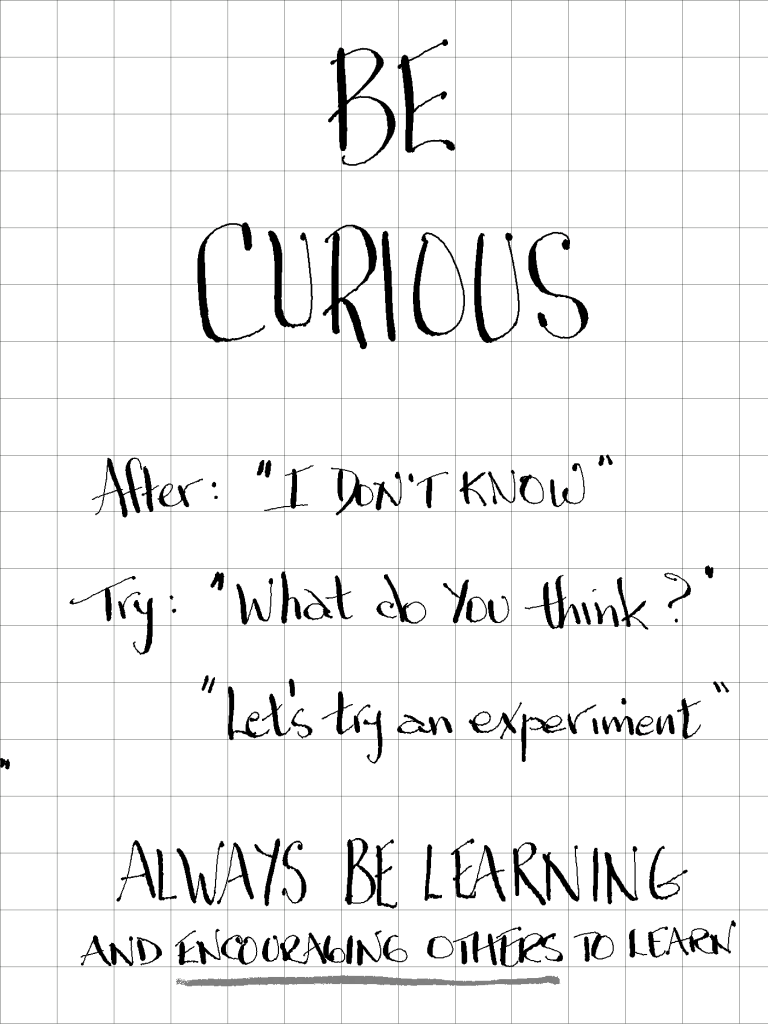 BE
CURIOUS
After: "I DON'T KNOW"
Try: "What do You think?"
"Let's try an experiment"
"
ALWAYS BE LEARNING
AND ENCOURAGING OTHERS TO LEARN